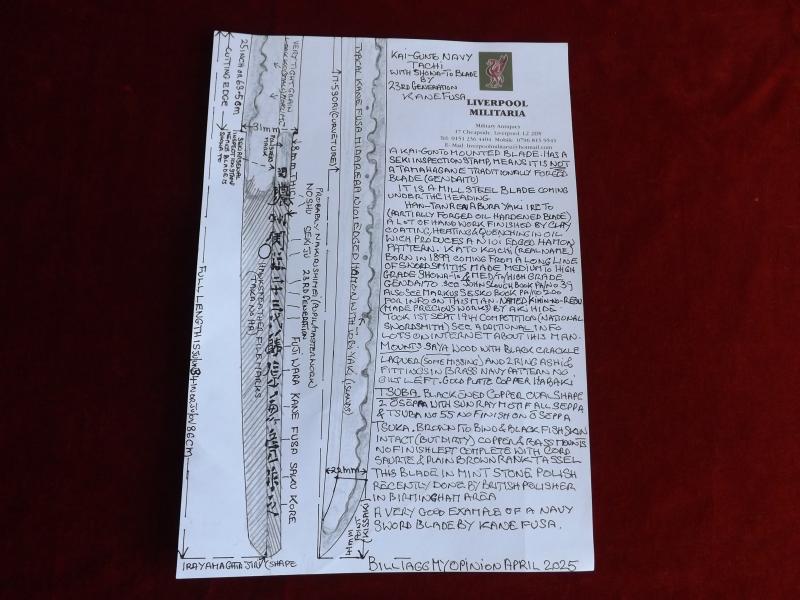 KAI-GUNE NAVY
TACHI
WITH SHOWA-TO BLADE
BY
23RD GENERATION
KANE FUSA
LIVERPOOL
MILITARIA
Military Antiques
17 Cheapside, Liverpool, L2 2DY
A KAI-GUNTO MOUNTED BLADE. HAS A
SEKI INSPECTION STAMP, MEANS IT IS NOT
A TAMAHAGANE TRADITIONALLY FORGED
BLADE (GENDAITO)
IT IS A MILL STEEL BLADE COMING
UNDER THE HEADING
HAN-TANREN ABURA YAKI IRE TO
(PARTIALLY FORGED OIL HARDENED BLADE)
A LOT OF HAND WORK FINISHED BY CLAY
COATING, HEATING & QUENCHING IN OIL
WICH PRODUCES A NIOI EDGED HAMON
PATTERN. KATO KOICHI (REAL NAME)
BORN IN 1899 COMING FROM A LONG LINE
OF SWORDSMITHS MADE MEDIUM TO HIGH
GRADE SHOWA-TO & MED/TO/HIGH GRADE
GENDAITO. SEE JOHN SLOUGH BOOK PA/NO 39
ALSO SEE MARKUS SESKO BOOK PA/NO 200
FOR INFO ON THIS MAN. NAMED KIHIN-NO-RETSU
(MADE PRECIOUS WORKS) BY AKIHIDE
TOOK 1ST SEAT 1941 COMPETITION (NATIONAL
SWORDSMITH) SEE ADDITIONAL INFO
LOTS ON INTERNET ABOUT THIS MAN.
MOUNTS SAYA WOOD WITH BLACK CRACKLE
LAQUER (SOME MISSING) AND 2 RING ASHI &
FITTINGS IN BRASS NAVY PATTERN NO
GILT LEFT. GOLD PLATE COPPER HABAKI
TSUBA. BLACKENED COPPER OVAL SHAPE
2 O SEPPA WITH SUN RAY MOTIF ALL SEPPA
& TSUBA NO 55 NO FINISH ON O SEPPA
TSUKA. BROWN ITO BIND & BLACK FISH SKIN
INTACT (BUT DIRTY) COPPER & BRASS MOUNTS
NO FINISH LEFT COMPLETE WITH CORD
SAURTE & PLAIN BROWN RANK TASSEL
THIS BLADE IN MINT STONE POLISH
RECENTLY DONE BY BRITISH POLISHER
IN BIRMINGHAM AREA
A VERY GOOD EXAMPLE OF A NAVY
SWORD BLADE BY KANE FUSA.
BILL TAGG MY OPINION APRIL 2025
25 INCH OR 63-5 CM
CUTTING EDGE
VERY TIGHT GRAIN
31mm
8mm THICK
TYPICAL KANE FUSA MIDAREBA NIOI EDGED HAMON WITH TOBIYAKI (ISLANDS)
TI-5 SORI (CURVETURE)
PROBABLY NAKIRISHIMEI (PUPIL/MASTER WORK)
NOSHU SEKI JU 23RD GENERATION
FUJIWARA KANE FUSA SAKU KORE
(TAKA NO HA)
22mm
IRAYAMAGATA JIRI SHAPE